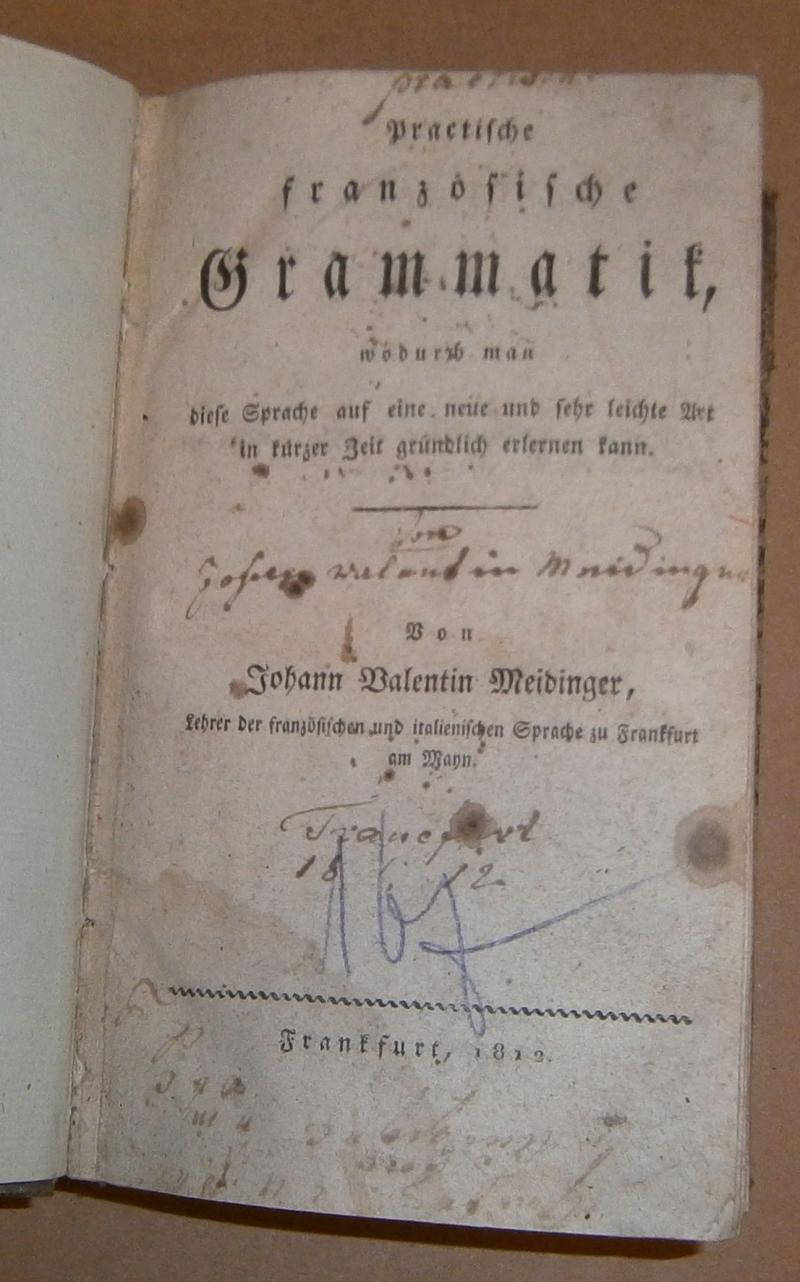 Practische
französische
Grammatik,
wodurch man
diese Sprache auf eine neue und sehr leichte Art
in kurzer Zeit gründlich erlernen kann.
Von
Valentin Meidinger
Von
Johann Valentin Meidinger,
Lehrer der französischen und italienischen Sprache zu Frankfurt
am Mayn.
18 12
Frankfurt, 1812.